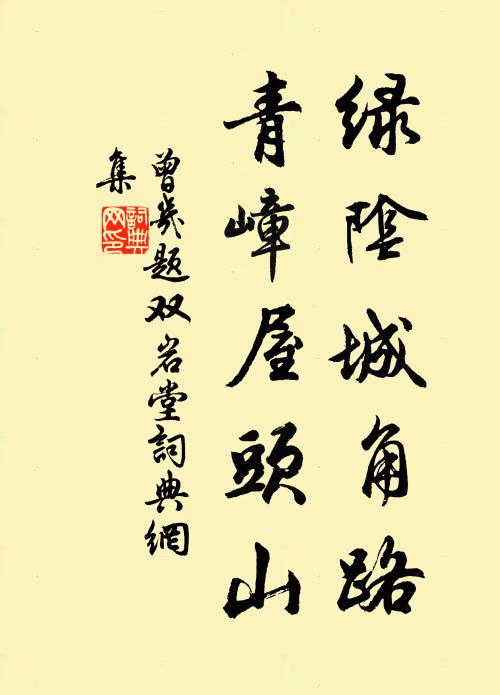 绿阴城角路
青嶂屋頭山
曾幾題双岩堂詞典網
集
詞典
网印